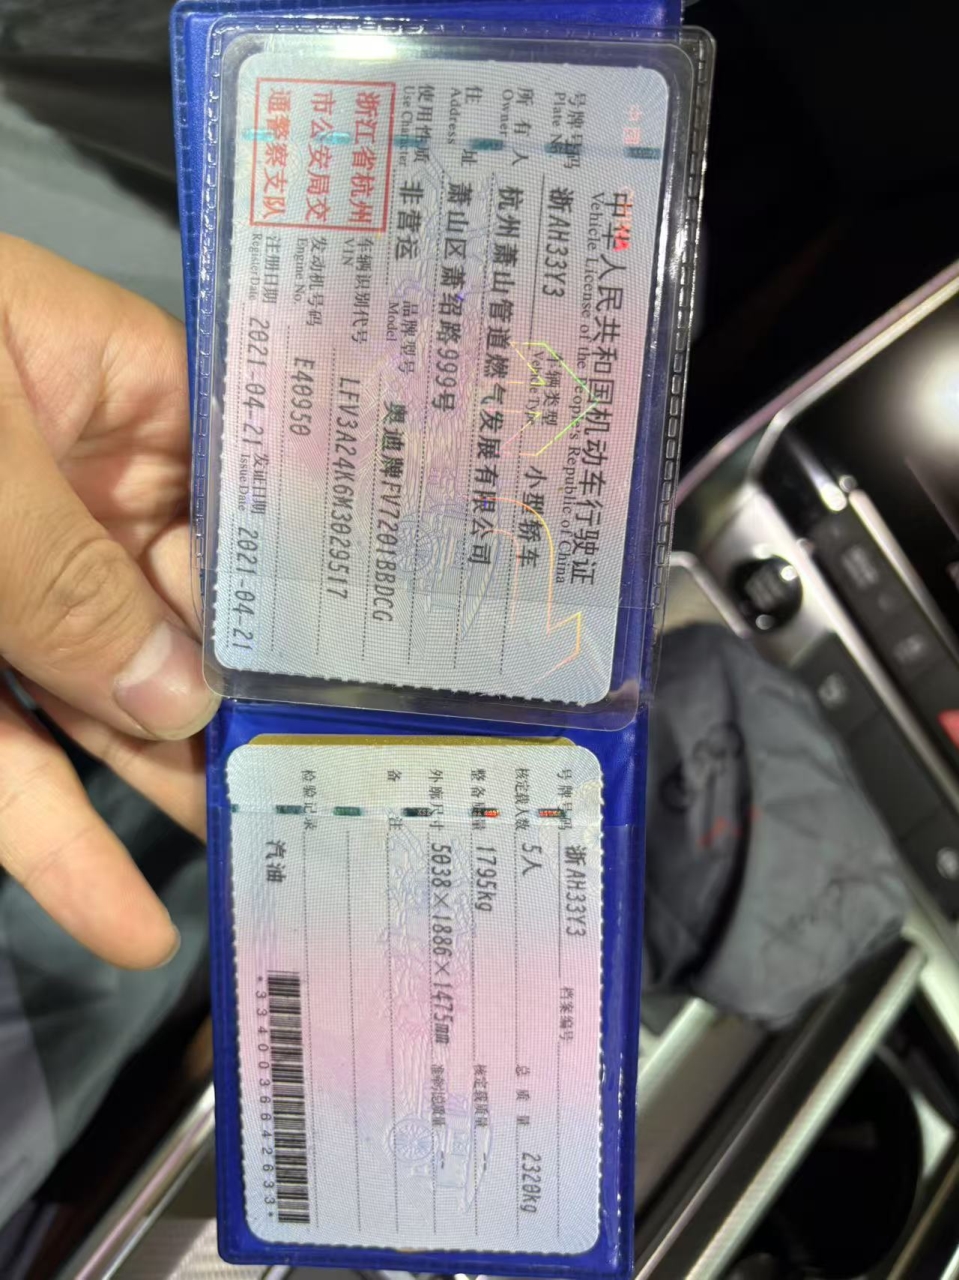 中华人民共和国机动车行驶证
Vehicle License of the People's Republic of China
号牌号码 浙AH33Y3 车辆类型 小型轿车
Plate No. Vehicle Type
所有人 杭州萧山管道燃气发展有限公司
Owner
住址 萧山区萧绍路999号
Address
使用性质 非营运 品牌型号 奥迪牌FV7201BBDCG
Use Character Model
浙江省杭州
市公安局交
通警察支队
车辆识别代号 LFV3A24K6M3029517
VIN
发动机号码 E40950
Engine No.
注册日期 2021-04-21 发证日期 2021-04-21
Register Date Issue Date
号牌号码 浙AH33Y3 档案编号
核定载人数 5人 总质量 2320kg
整备质量 1795kg 核定载质量 --
外廓尺寸 5038×1886×1475mm 准牵引总质量 --
备注
检验记录
汽油
*3340036642633*